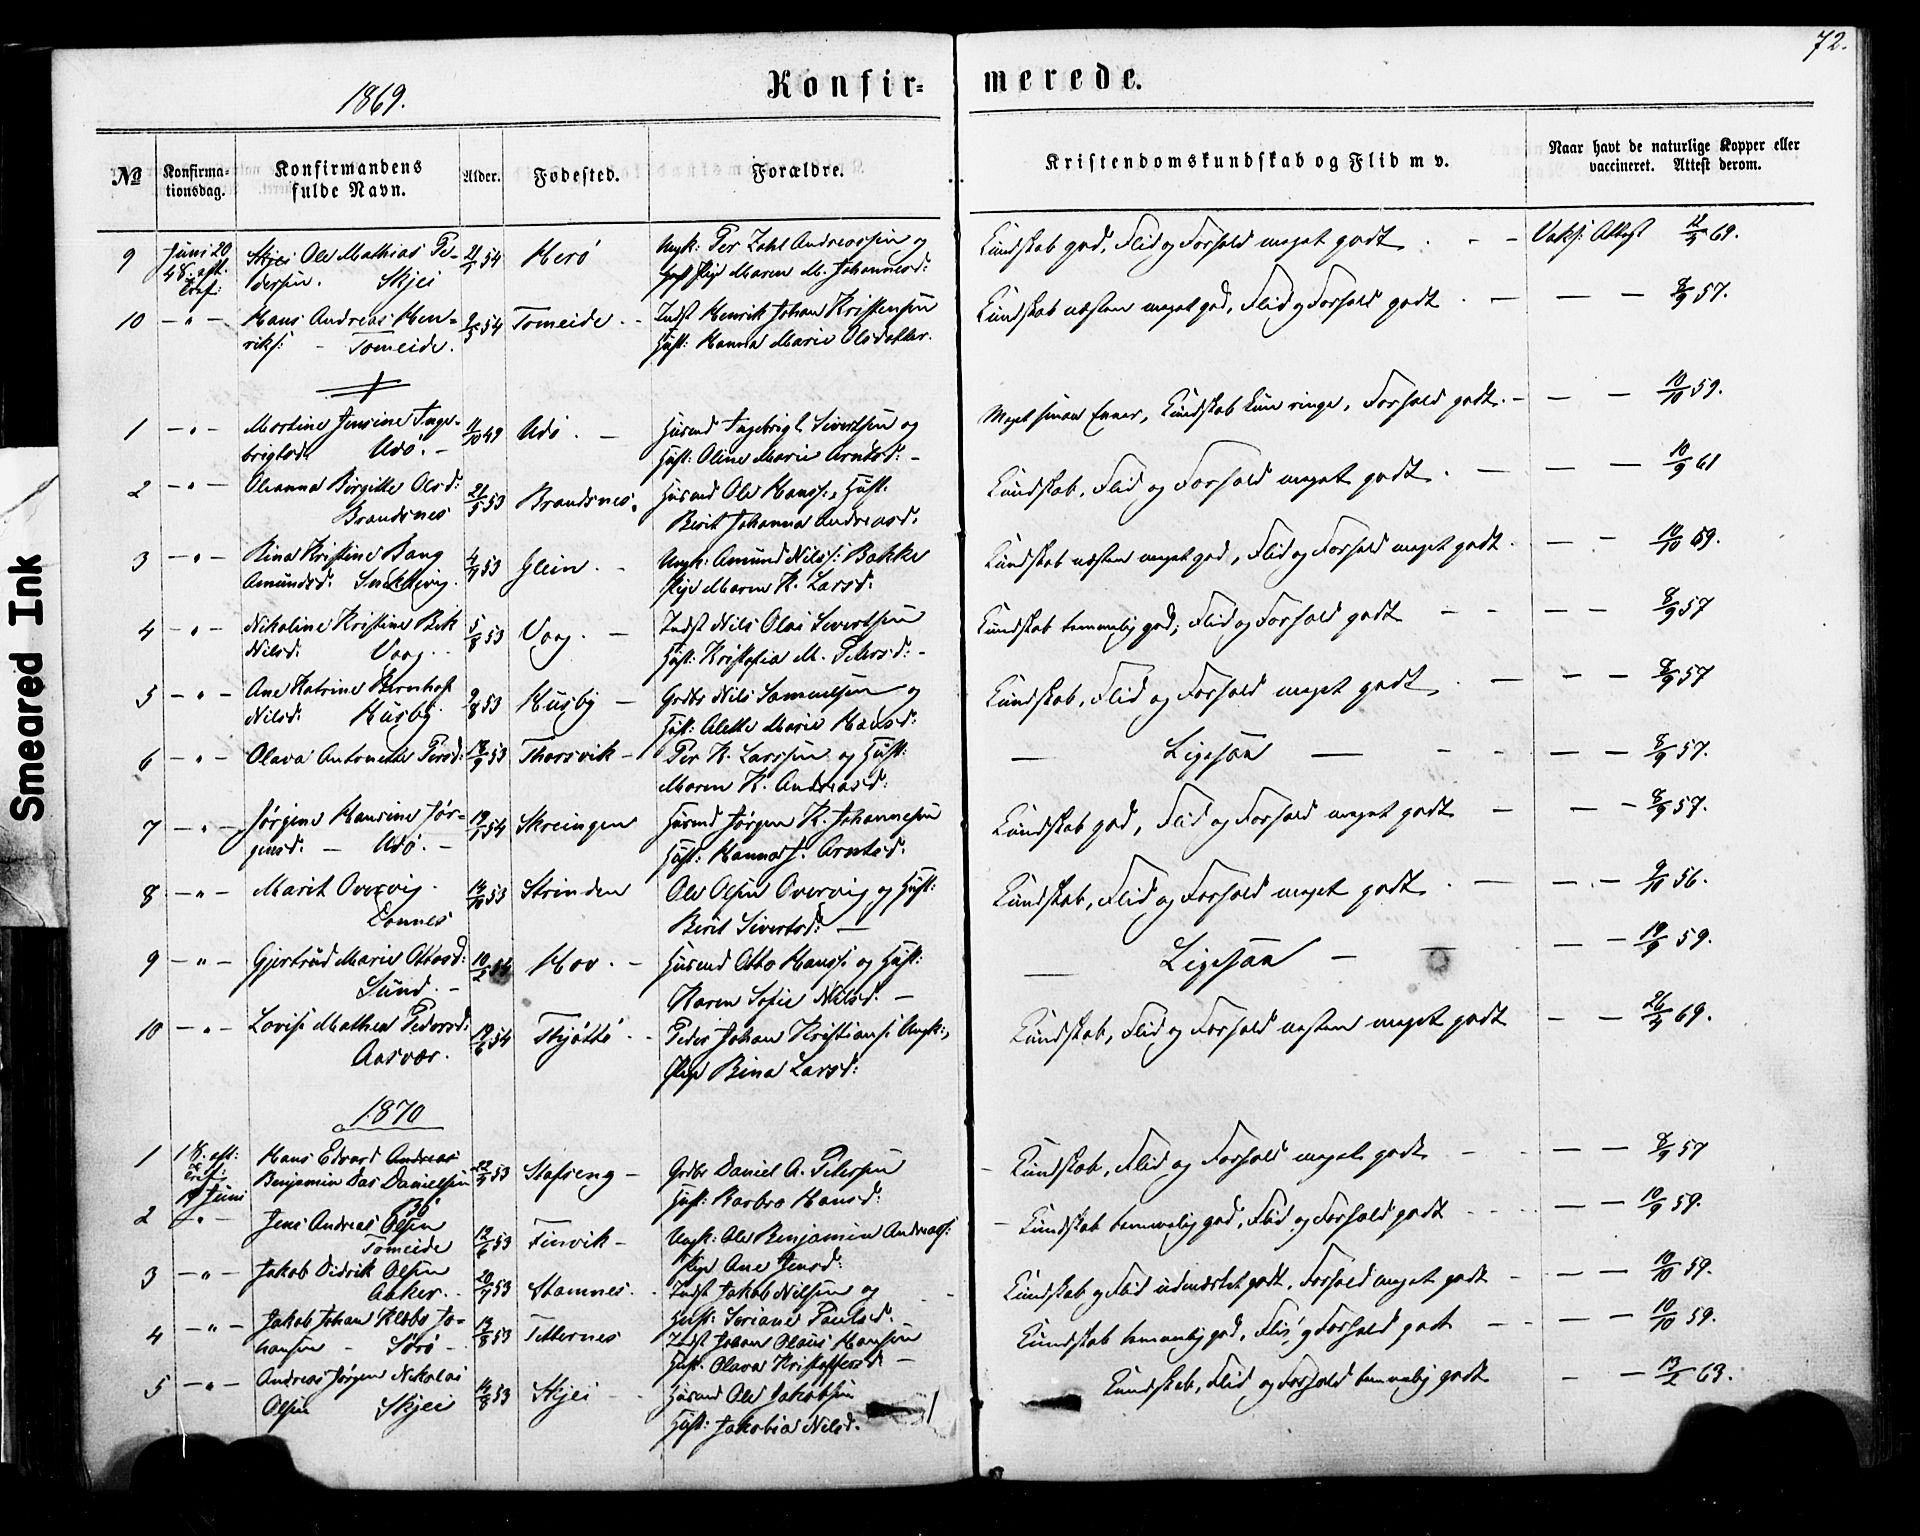 72.
1869.
Konfir= merede.
№ Konfirma-tionsdag. Konfirmandens fulde Navn. Alder. Fødested. Forældre. Kristendomskundskab og Flid m v. Naar havt de naturlige Kopper eller vaccineret. Attest derom.
9 Juni 20 Skjei Ole Mathias Pe- 21/1 54 Herö Ungk: Per Zahl Andreassen og Kundskab god, Flid og Forhold meget godt - - Vaks: Attest 69.
4 S. eft. Tref: dersen. Skjei Pige Maren M. Johannesd:
10 - " - Hans Andreas Hen- 54 Tomeide - Indst Henrik Johan Kristensen Kundskab næsten meget god, Flid og Forhold godt - - - 8/9 57.
riks: - Tomeide. Hust: Hanna Marie Olsdatter.
1 - " - Martine Jensine Inge- 11/10 49 Udö. - Husmd Ingebrigt Sivertsen og Meget svage Evner, Kundskab kun ringe, Forhold godt. - - - 10/10 59.
brigtsd. Udö. - Hust: Oline Marie Arntsd: -
2 - " - Oleanna Birgitte Olsd: 21/5 53 Brandsnes. Husmd Ole Hanss:, Hust: Kundskab, Flid og Forhold meget godt. - - - 10/9 61
Brandsnes Berit Johanna Andreasd.
3 - " - Rina Kristine Bang 4/9 53 Glein. - Ungk: Amund Nilss: Bakke Kundskab næsten meget god, Flid og Forhold meget godt. - - 10/10 59.
Amundsd. Pige Maren K. Larsd:
4 - " - Nikoline Kristine Bek 5/8 53 Vaag. - Indst Nils Olai Sivertsen Kundskab temmelig god, Flid og Forhold godt - - - - 8/9 57
Nilsd. Vaag. - Hust: Kristofia M. Petersd: -
5 - " - Ane Katrine Bernhoft 9/8 53 Husby - Grdbr Nils Samuelsen og Kundskab, Flid og Forhold meget godt. - - - 8/9 57
Nilsd. Husby. Hust: Alette Marie Hansd:
6 - " - Olava Antonette Persd: 18/9 53 Thorsvik - Per K. Larssen og Hust: - Ligesaa - - - - - 8/9 57.
Maren K. Andreasd:
7 - " - Jørgine Hansine Jør- 19/1 54 Skreingen Husmd Jørgen K. Johannesen Kundskab god, Flid og Forhold meget godt - - - 8/9 57.
gensd. - Udö. - Hust: Hanna J. Arntsd.
8 - " - Marit Overvig. 14/10 53 Strinden Ole Olsen Overvig og Hust: Kundskab, Flid og Forhold meget godt. - - - 9/10 56.
Dønnes Berit Sivertsd: -
9 - " - Gjertrud Marie Ottosd: 10/2 54 Hov. - Husmd Otto Hanss: og Hust: - Ligesaa - - - - 19/9 59.
Lund. - Karen Sofie Nilsd. -
10 - " - Lovise Mathea Pedersd: 19/6 54 Thjöttö - Peder Johan Kristians: Ungk:, Kundskab, Flid og Forhold næsten meget godt - - 26/4 69.
Aasvær. Pige Bina Larsd:
1870
1 1 S. eft: Tref: Hans Edvard Andreas 22/9 53 Stafseng - Grdbr Daniel A. Petersen - Kundskab, Flid og Forhold meget godt - - - - 8/9 57
19 Juni Benjamin Das Danielsen Hust: Barbro Hansd:
2 - " - Jens Andreas Olsen 12/6 53 Finvik - Ungk: Ole Benjamin Andreass: - Kundskab temmelig god, Flid og Forhold godt - - - - 10/9 59.
Tomeide Pige Ane Jensd:
3 - " - Jakob Didrik Olsen 20/7 53 Stamnes. Indst Jakob Nilsen og Kundskab og Flid udmærket godt, Forhold meget godt - - - 10/10 59.
Aaker. Hust: Seriane Paulsd.
4 - " - Jakob Johan Klæbo Jo- 13/8 53 Tetternes Indst Johan Olaus Hansen Kundskab temmelig god, Flid og Forhold godt - - - - 10/10 59.
hansen - Sörö - Hust. Olava Kristoffersd -
5 - " - Andreas Jørgen Nikolai 14/8 53 Skjei - Husmd Ole Jakobsen Kundskab, Flid og Forhold temmelig godt - - 13/2 63.
Olsen Skjei Hust: Jakobia Nilsd.
Smeared Ink